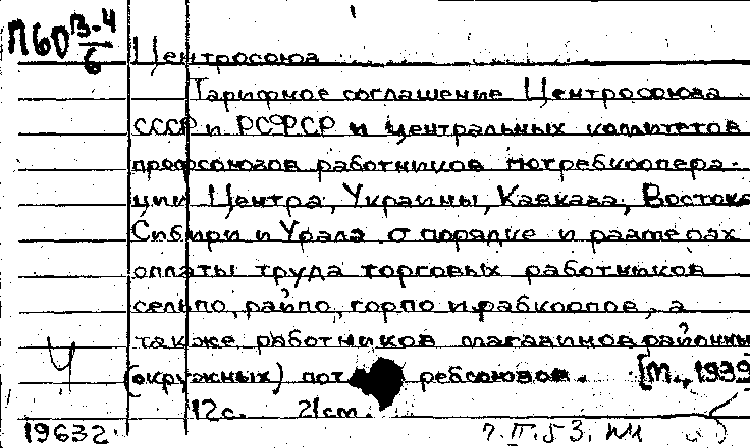 П60 13-4/6
Центросоюз
Тарифное соглашение Центросоюза
СССР и РСФСР и центральных комитетов
профсоюзов работников потребкоопера-
ции Центра, Украины, Кавказа, Востока
Сибири и Урала о порядке и размерах
оплаты труда торговых работников
сельпо, райпо, горпо и рабкоопов, а
также работников магазинов районны
(окружных) пот ребсоюзов. [М., 1939
Ч
12с. 21см.
19632. 7.II.53.